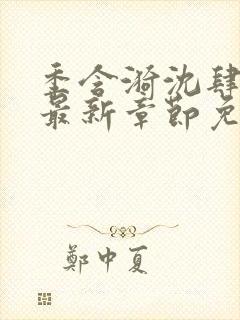 季含漪沈肆
最新章节免
鄭中夏